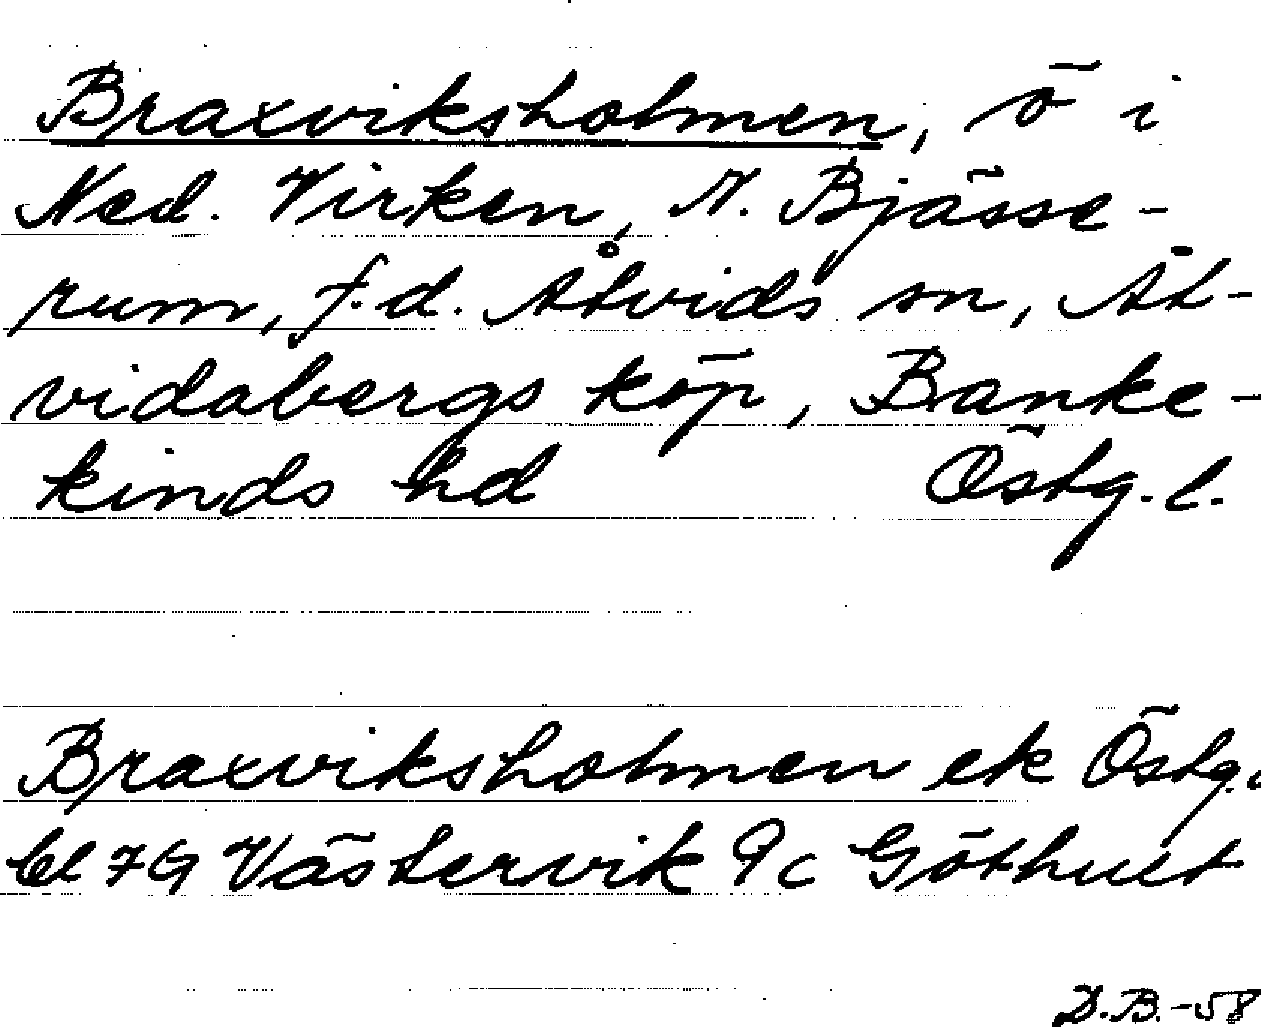 Braxviksholmen, ö i
Ned. Virken, N. Bjässe-
rum, f.d. Åtvids sn, Åt-
vidabergs köp, Banke-
kinds hd Östg. l.
Braxviksholmen ek Östg.
bl 7G Västervik 9c Göthult
D.B.-58